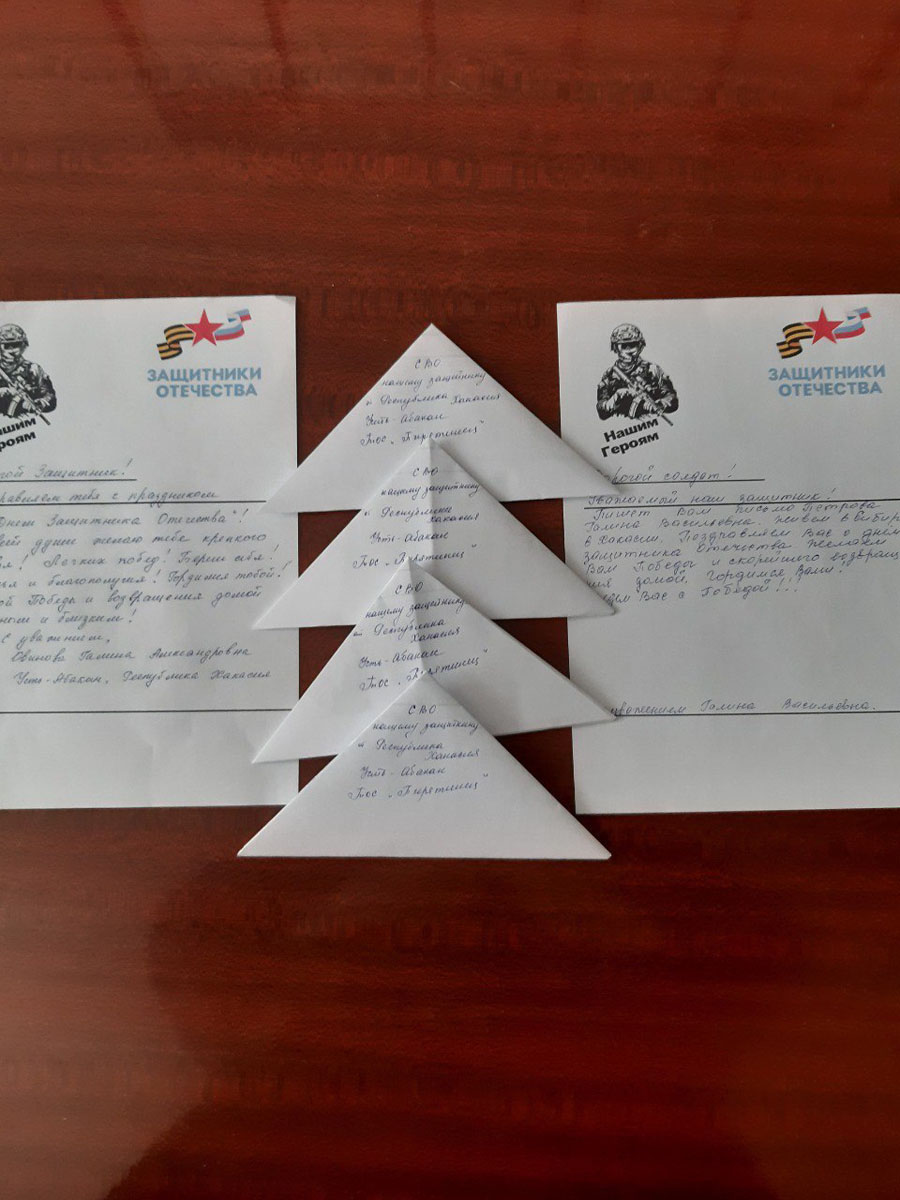 ЗАЩИТНИКИ
ОТЕЧЕСТВА
ашим
роям
гой Защитник!
равляем тебя с праздником
Днем Защитника Отечества"!
ей души желаю тебе крепкого
я! Легких побед! Береги себя!
я и благополучия! Гордимся тобой!
ой Победы и возвращения домой
ным и близким!
С уважением,
Галина Александровна
Усть-Абакан, Республика Хакасия
СВО
нашему защитнику
и Республики Хакасия
Усть-Абакан
Тос „Пирятинец"
СВО
нашему защитнику
и Республика
Хакасия
Усть-Абакан
Тос „Пирятинец"
СВО
нашему защитнику
и Республика
Хакасия
Усть-Абакан
Тос „Пирятинец"
СВО
нашему защитнику
и Республика
Хакасия
Усть-Абакан
Тос „Пирятинец"
ЗАЩИТНИКИ
ОТЕЧЕСТВА
Нашим
Героям
орогой солдат!
Уважаемый наш защитник!
Пишет Вам письмо Петрова
Галина Васильевна. Живем в Сибир
в Хакасии. Поздравляем Вас с днем
защитника Отечества. Желаем
Вам Победы и скорейшего возвращ
ния домой. Гордимся Вами.
дем Вас с Победой!!!
уважением Галина Васильевна.